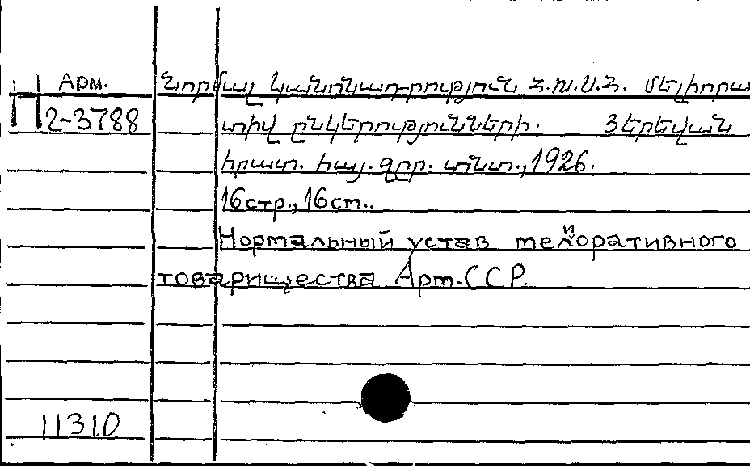 Арм. Նորմալ կանոնադրություն Հ.Ս.Խ.Հ. մելիորա
П2-3788 տիվ ընկերությունների. Յերեվան
հրատ. հայ. գյուղ. տնտ., 1926.
16стр., 16см.
Нормальный устав мелиоративного
товарищества Арм.ССР.
11310